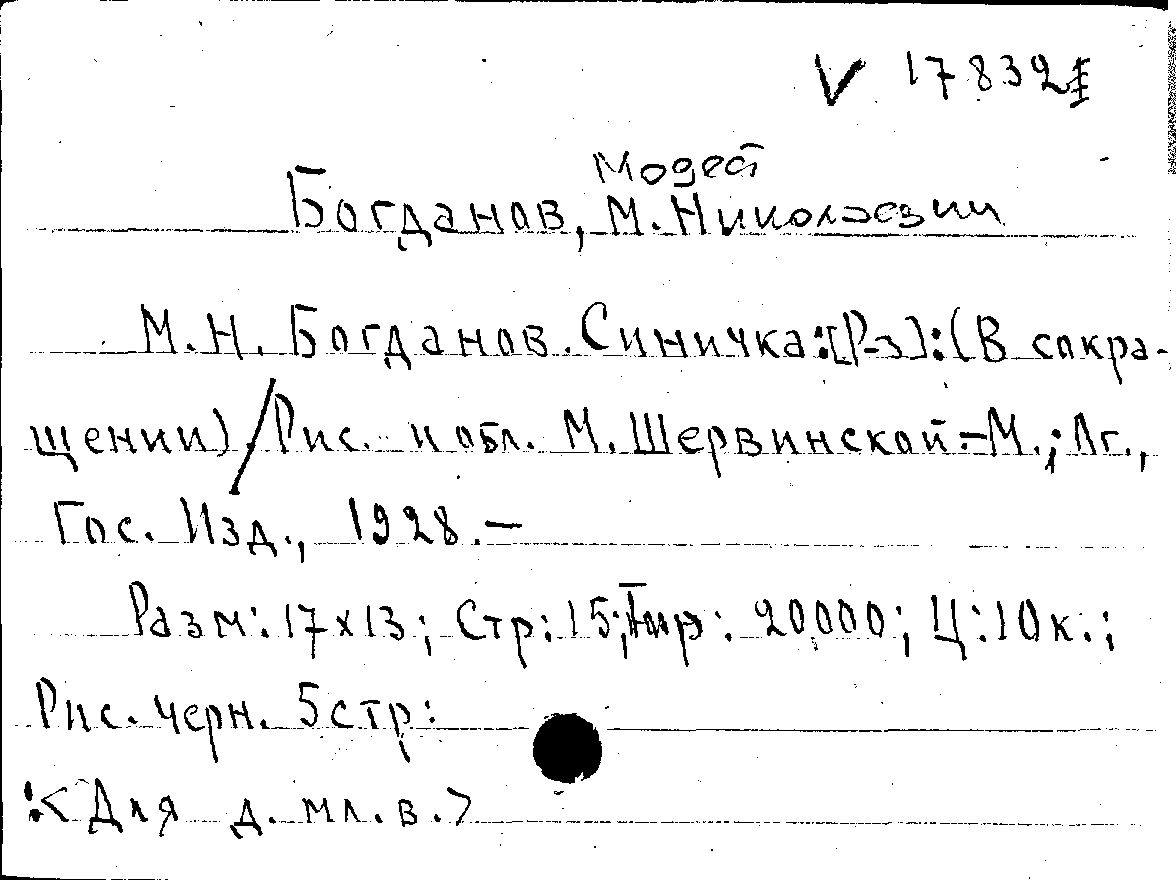 V 17832
Модест
Богданов, М. Николаевич
М.Н. Богданов. Синичка:[Р-з]:(В сокра-
щении)/Рис. и обл. М. Шервинской.-М.; Лг.,
Гос. Изд., 1928.—
Разм: 17х13; Стр: 15; Тир: 20000; Ц: 10 к.;
Рис. черн. 5 стр:
:<Для д. мл. в.>